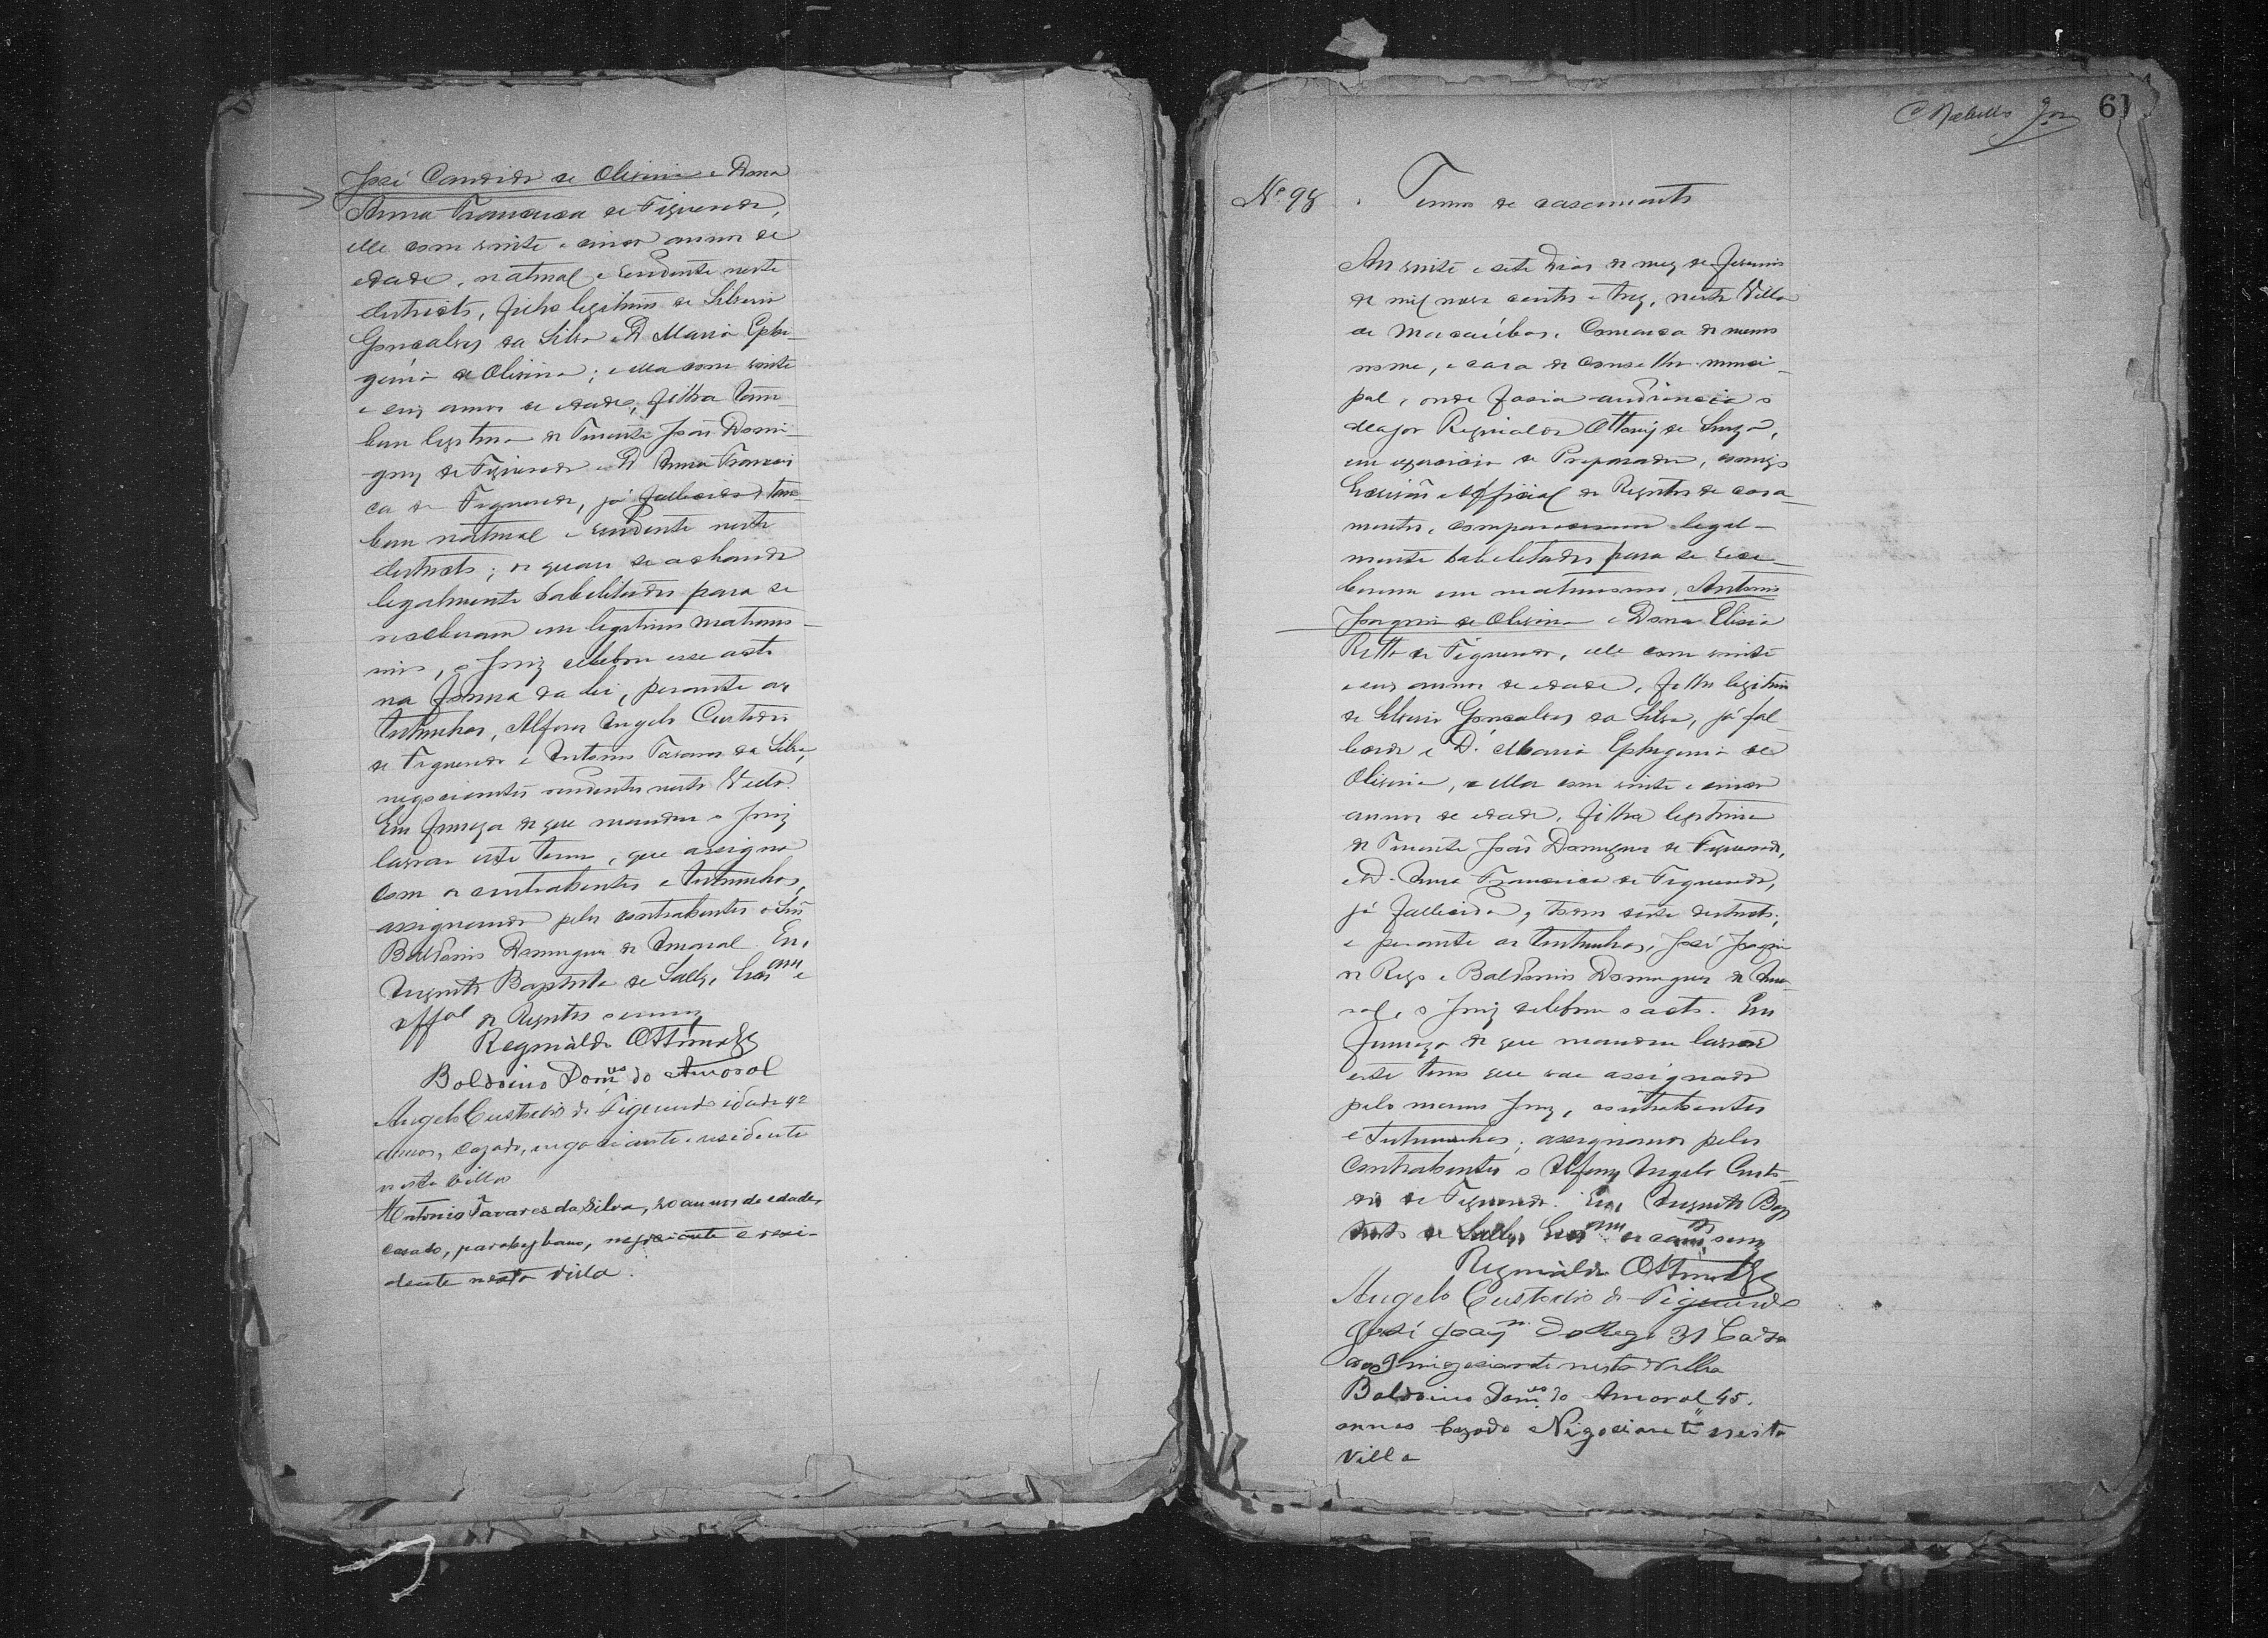 José Candido de Oliveira e Dona
Anna Francisca de Figueredo,
elle com vinte e cinco annos de
edade, natural e residente neste
districto, filho legitimo de Silverio
Gonçalves da Silva e D. Maria Ephi-
genia de Oliveira; e ella com vinte
e seis annos de edade, filha tam-
bem legitima do Tenente João Domin-
gues de Figueredo e D. Anna Francis
ca de Figueredo, já fallecida, tam-
bem natural e residente neste
districto; os quaes se achando
legalmente habilitados para se
receberem em legitimo matrimo-
nio, o Juiz celebrou esse acto
na forma da lei, perante as
testemunhas, Alferes Angelo Custodio
de Figueredo e Antonio Tavares da Silva,
negociantes residentes nesta Villa.
Em firmeza do que mandou o Juiz
lavrar este termo, que assigna
com os contrahentes e testemunhas,
assignando pelos contrahentes o Snr.
Baldoino Domingues do Amaral. Eu,
Augusto Baptista de Salles, Escrivam e
offal do Registro o escrevy
Reginaldo Ottoni
Baldoino Domues do Amaral
Angelo Custodio de Figueredo idade 42
annos, cazado, negociante e residente
nesta villa
Antonio Tavares da Silva, 50 annos de edade,
casado, parahybano, negociante e resi-
dente nesta villa.
C Rabello Jor 61
Nº 98. Termo de casamento
Aos vinte e sete dias do mez de Janeiro
de mil nove centos e trez, nesta Villa
de Macaúbas, Comarca do mesmo
nome, e casa do Conselho munici-
pal, onde fazia audiencia o
Major Reginaldo Ottoni de Souza,
em exercicio de Preparador, comigo
Escrivão e Official do Registro de casa-
mentos, compareceram legal-
mente habilitados para se rece-
berem em matrimonio, Antonio
Joaquim de Oliveira e Dona Elisia
Ritta de Figueredo, elle com vinte
e seis annos de edade, filho legitimo
de Silverio Gonçalves da Silva, já fal-
lecido e D. Maria Ephigenia de
Oliveira, e ella com vinte e cinco
annos de edade, filha legitima
do Tenente João Domingues de Figueredo,
e D. Anna Francisca de Figueredo,
já fallecida, todos deste districto;
e perante as testemunhas, José Joaquim
do Rego e Baldoino Domingues do Ama-
ral, o Juiz celebrou o acto. Em
firmeza do que mandou lavrar
este termo que vae assignado
pelo mesmo Juiz, contrahentes
e testemunhas; assignando pelos
contrahentes o Alferes Angelo Custo-
dio de Figueredo. Eu, Augusto Bap
tista de Salles, Escrivam de casamtos, o escrevy
Reginaldo Ottoni
Angelo Custodio de Figueredo
José Joaqm do Rego 31 Cazado
negociante nesta villa
Baldoino Domues do Amaral 45,
annos cazado Nigociante nesta
villa